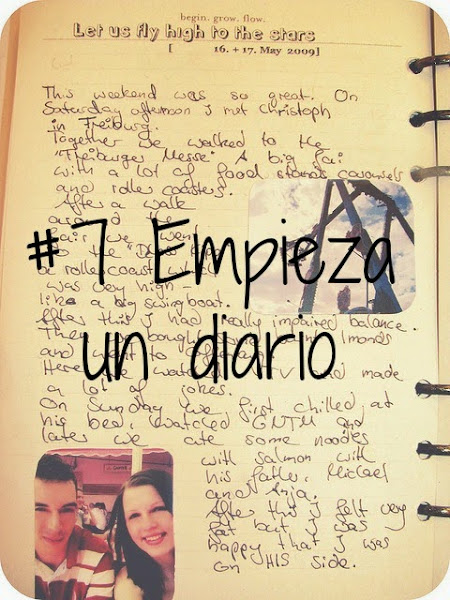 begin. grow. flow.
Let us fly high to the stars
[ 16. + 17. May 2009]
This weekend was so great. On
Saturday afternoon I met Christoph
in Freiburg.
Together we walked to the
"Freiburger Messe". A big fai
with a lot of food stands carousels
and roller coasters.
After a walk
around the
fair we went
to the
a roller coast
was very high -
like a big swingboat.
After this I had really impaired balance.
The bought some almonds
and went to
Here we watch TV and made
a lot of jokes.
On Sunday we first chilled at
his bed, watched GNTM and
later we ate some noodles
with salmon with
his father, Michael
and Anja.
After this I felt very
fat but I was
happy that I was
on HIS side.
#7 Empieza
un diario